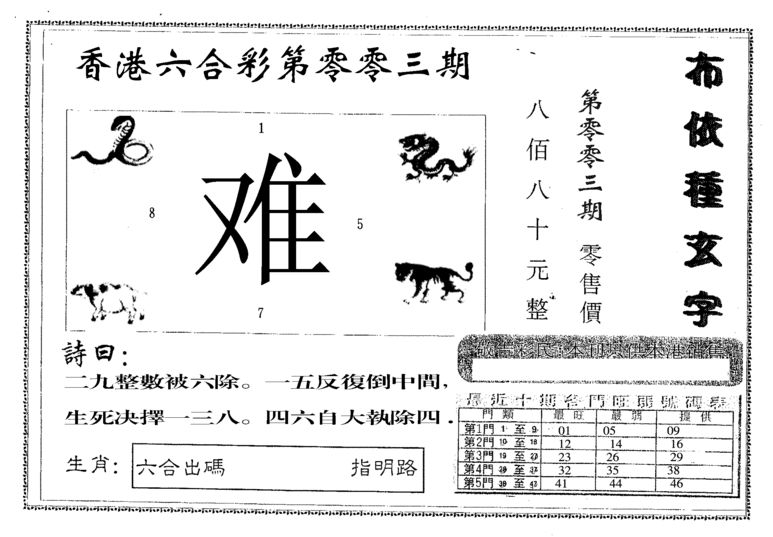 香港六合彩第零零三期
1
难
8
5
7
詩曰：
二九整數被六除。一五反復倒中間，
生死决擇一三八。四六自大執除四．
生肖：六合出碼 指明路
布依種玄字
第零零三期 零售價
八佰八十元整
最近十期各門旺弱號碼表
門類 最旺 最弱 提供
第1門 1 至 9 01 05 09
第2門 10 至 18 12 14 16
第3門 19 至 23 26 29
第4門 至 32 35 38
第5門 至 41 44 46